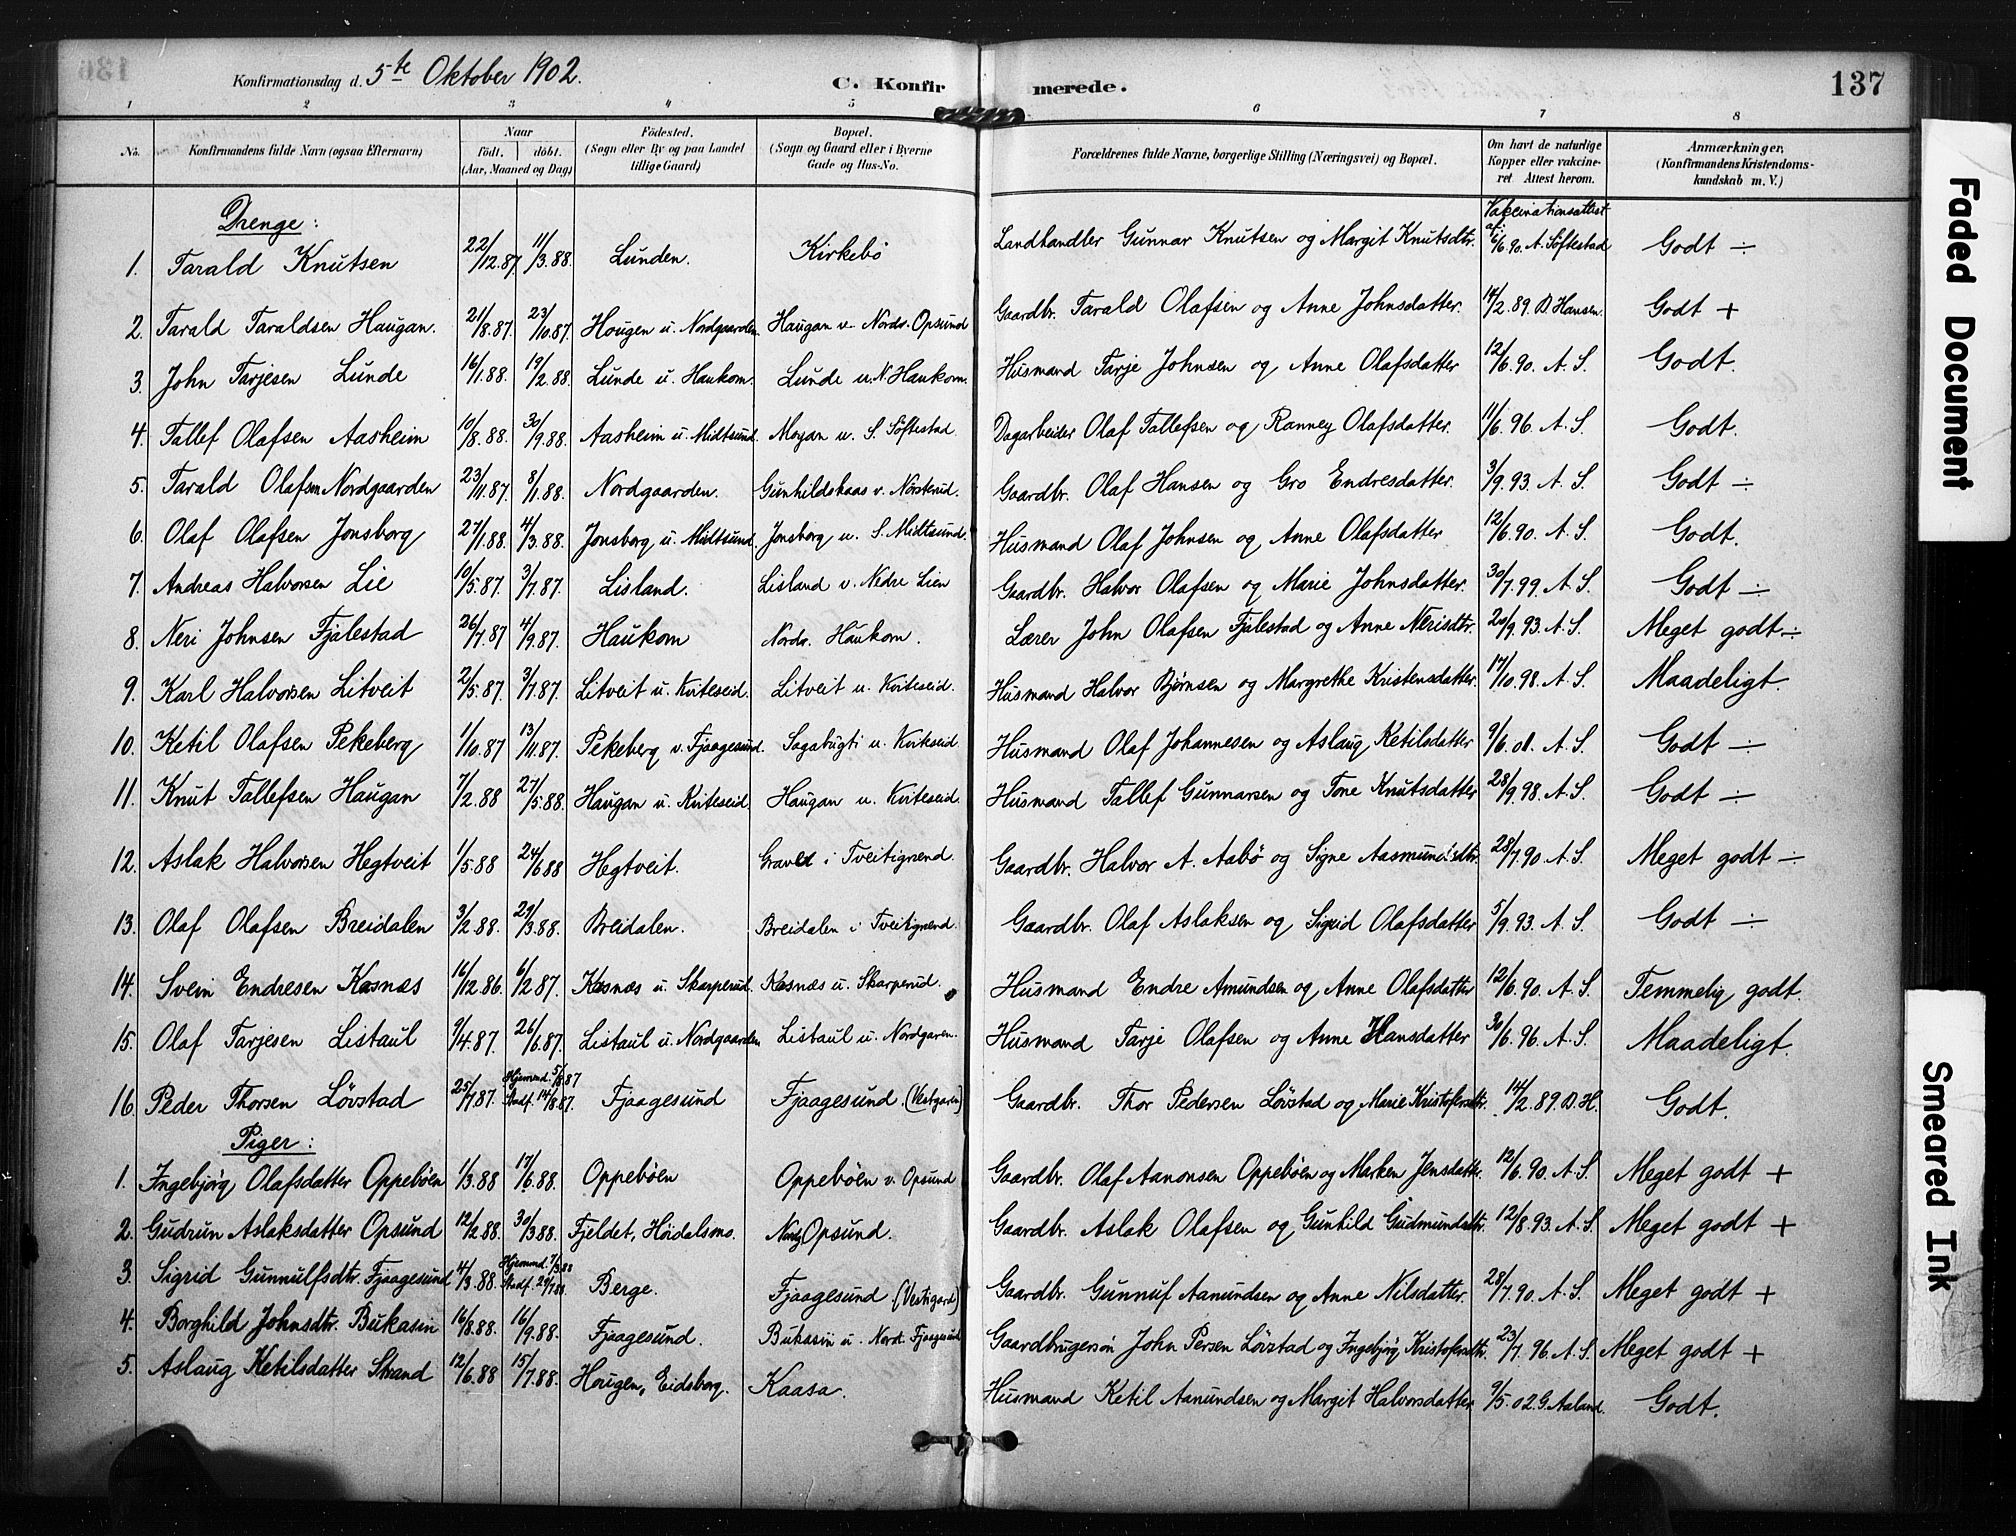 136
Konfirmationsdag d. 5te Oktober 1902. C. Konfirmerede. 137
1 2 3 4 5 6 7 8
No. Konfirmandens fulde Navn (ogsaa Efternavn) Naar födt. döbt. (Aar, Maaned og Dag) Födested. (Sogn eller By og paa Landet tillige Gaard) Bopæl. (Sogn og Gaard eller i Byerne Gade og Hus-No. Forældrenes fulde Navne, borgerlige Stilling (Næringsvei) og Bopæl. Om havt de naturlige Kopper eller vakcineret Attest herom. Anmærkninger, (Konfirmandens Kristendomskundskab m. V.)
Drenge:
1. Tarald Knutsen 22/12.87. 11/3.88. Lunden. Kirkebö Landhandler Gunnar Knutsen og Margit Knutsdtr. Vakcinationsattest af 6/6.90. A. Söftestad Godt ÷
2. Tarald Taraldsen Haugan. 21/8.87. 23/10.87. Hougen u. Nordgaarden Haugan v. Nords. Opsund Gaardbr. Tarald Olafsen og Anne Johnsdatter. 14/2.89. D. Hansen. Godt +
3. John Tarjesen Lunde 16/1.88. 19/2.88. Lunde u. Haukom. Lunde u. N. Haukom. Husmand Tarje Johnsen og Anne Olafsdatter 12/6.90. A. S. Godt.
4. Tallef Olafsen Aasheim 10/8.88. 30/9.88. Aasheim u. Midtsund. Mogan u. S. Söftestad. Dagarbeider Olaf Tallefsen og Ranney Olafsdatter. 11/6.96. A. S. Godt.
5. Tarald Olafsen Nordgaarden 23/11.87. 8/1.88. Nordgaarden. Gunhildskaas v. Norsterud. Gaardbr. Olaf Hansen og Gro Endresdatter. 3/9.93. A. S. Godt ÷
6. Olaf Olafsen Jonsborg 27/1.88. 4/3.88. Jonsborg u. Midtsund. Jonsborg u. S. Midtsund. Husmand Olaf Johnsen og Anne Olafsdatter 12/6.90. A. S. Godt.
7. Andreas Halvorsen Lie 10/5.87. 3/7.87. Lisland. Lisland v. Nedre Lien Gaardbr. Halvor Olafsen og Marie Johnsdatter. 30/7.99. A. S. Godt ÷
8. Neri Johnsen Fjalestad 26/7.87 4/9.87. Haukom Nords. Haukom. Lærer John Olafsen Fjalestad og Anne Nerisdtr. 20/9.93. A. S. Meget godt ÷
9. Karl Halvorsen Litveit 2/5.87. 3/7.87. Litveit u. Kviteseid. Litveit u. Kviteseid. Husmand Halvor Bjørnsen og Margrethe Kristensdatter. 17/10.98. A. S. Maadeligt.
10. Ketil Olafsen Pekeberg 1/10.87 13/11.87. Pekeberg v. Fjaagesund. Sagabugti u. Kviteseid Husmand Olaf Johannesen og Aslaug Ketilsdatter 9/6.01. A. S. Godt ÷
11. Knut Tallefsen Haugan 7/2.88 27/5.88. Haugan u. Kviteseid. Haugan u. Kviteseid. Husmand Tallef Gunnarsen og Tone Knutsdatter 28/9.98. A. S. Godt ÷
12. Aslak Halvorsen Hegtveit 1/5.88 24/6.88 Hegtveit. Graver i Tveitigrend. Gaardbr. Halvor A. Aabö og Signe Aasmundsdtr. 28/7.90. A. S. Meget godt ÷
13. Olaf Olafsen Breidalen 3/2.88. 29/3.88. Breidalen. Breidalen i Tveitigrend. Gaardbr. Olaf Aslaksen og Sigrid Olafsdatter 5/9.93. A. S. Godt ÷
14. Svein Endresen Kasnæs 16/12.86. 6/2.87. Kasnæs u. Skarperud. Kasnæs u. Skarperud. Husmand Endre Amundsen og Anne Olafsdatter 12/6.90. A. S. Temmelig godt.
15. Olaf Tarjesen Listaul 9/4.87. 26/6.87. Listaul u. Nordgaarden Listaul u. Nordgaren. Husmand Tarje Olafsen og Anne Hansdatter 30/6.96. A. S. Maadeligt.
16. Peder Thorsen Lövstad 25/7.87. Hjemmd. 5/8.87 Stadf. 14/8.87. Fjaagesund Fjaagesund (Vestgaren) Gaardbr. Thor Pedersen Lövstad og Marie Kristofersdtr. 14/2.89. D. H. Godt.
Piger:
1. Ingebjörg Olafsdatter Oppebøen 1/3.88 17/6.88. Oppebøen Oppebøen v. Opsund Gaardbr. Olaf Aanonsen Oppebøen og Marken Jensdatter. 12/6.90. A. S. Meget godt +
2. Gudrun Aslaksdatter Opsund 12/2.88. 30/3.88. Fjeldet, Höidalsmo. Nordg. Opsund. Gaardbr. Aslak Olafsen og Gunhild Gudmundsdtr. 12/8.93. A. S. Meget godt +
3. Sigrid Gunnulfsdtr. Fjaagesund 4/3.88. Hjemmd. 7/3.88 Stadf. 29/7.88. Berge. Fjaagesund (Vestigarde) Gaardbr. Gunnuf Aamundsen og Anne Nilsdatter. 28/7.90. A. S. Meget godt +
4. Borghild Johnsdtr. Bukasin 16/8.88. 16/9.88. Fjaagesund. Bukasin u. Nord. Fjaagesund Gaardbrugersøn John Persen Lövstad og Ingebjörg Kristofersdtr. 23/7.96. A. S. Meget godt +
5. Aslaug Ketilsdatter Strand 12/6.88 15/7.88. Hougen, Eidsborg. Kaasa. Husmand Ketil Aamundsen og Margit Halvorsdatter 9/5.02. G. Aaland. Godt.
Faded Document
Smeared Ink